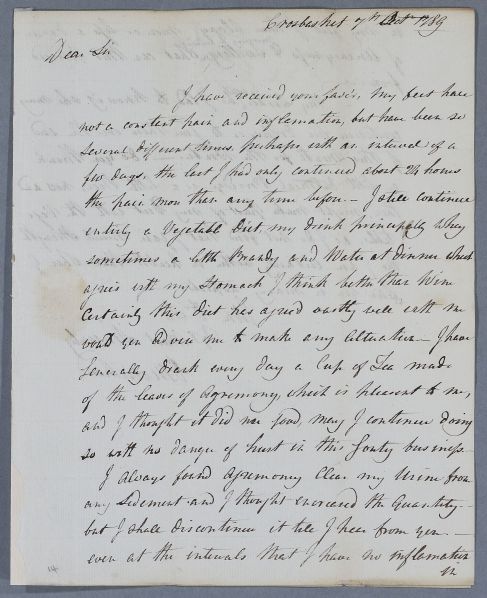 Crosbasket 7th Octr 1789
Dear Sir
I have received your favor, my feet have
not a constant pain and inflamation, but have been so
several different times, perhaps with an interval of a
few days, the last I had only continued about 24 hours
the pain more than any time before – I still continue
entirely a Vegetable Diet my drink principally whey
sometimes a little Brandy and Water at dinner which
agrees with my Stomach I think better than Wine
Certainly this diet has agreed vastly well with me
would you advise me to make any alteration – I have
Generally drank every day a Cup of Tea made
of the leaves of Agremony, which is pleasent to me,
and I thought it did me good, may I continue doing
so with no danger of hurt in this Gouty business
I always found Agremony Clear my Urine from
any Sediment and I thought encreased the Quantity –
but I shall discontinue it till I hear from you –
even at the intervals that I have no inflamation
in